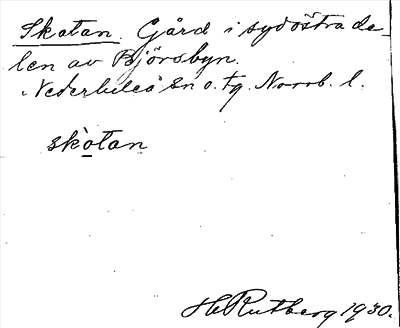 Skotan. Gård i sydöstra de-
len av Björsbyn.
Nederluleå sn o. tg. Norrb. l.
skòtan
H Rutberg 1930.